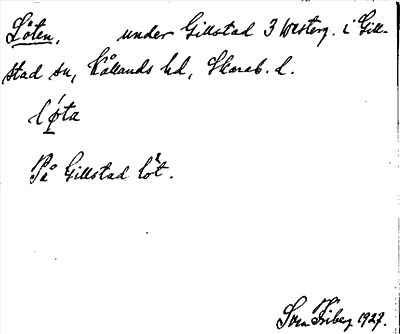 Löten, under Gillstad 3 Westerg. i Gill-
stad sn, Kållands hd, Skarab. l.
løta
På Gillstad löt.
Sven Friberg 1927.